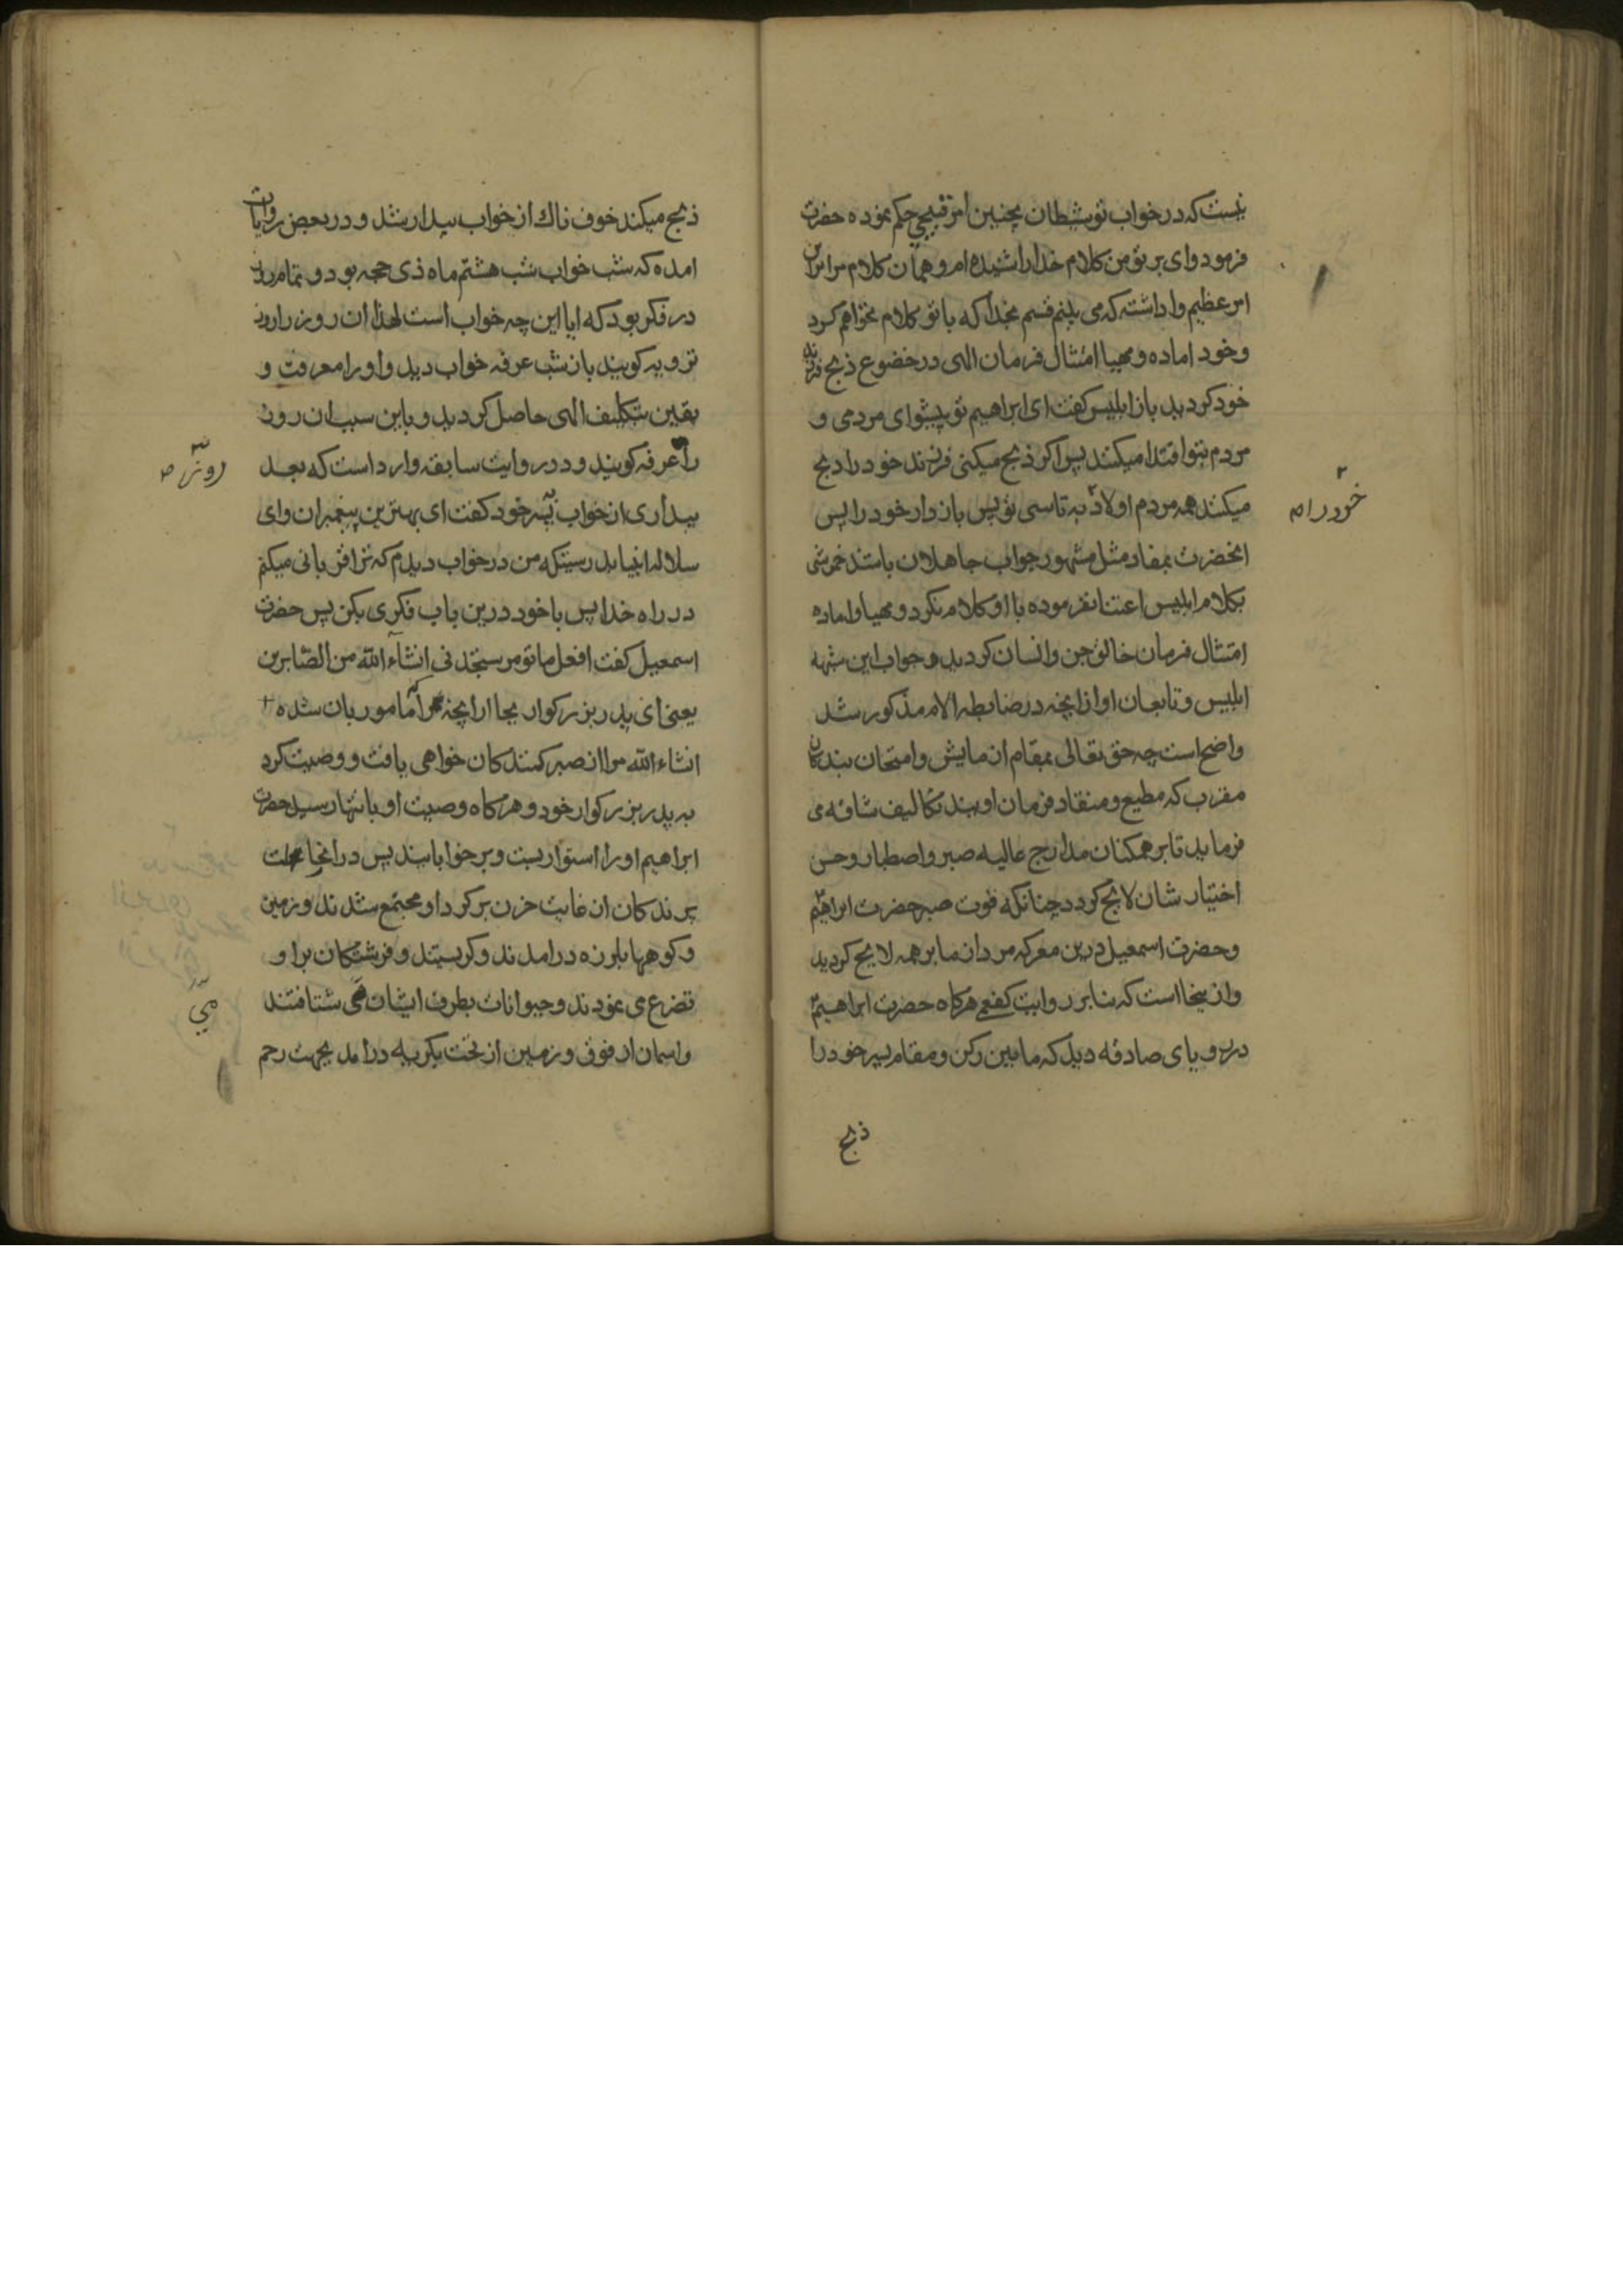 نیست که در خواب تو شیطان بچنین امر قبیحی حکم نموده حضرت
فرمود وای بر تو من کلام خدا را شنیده‌ام و همان کلام مرا بر این
امر عظیم واداشته که می‌بینم قسم بخدا که با تو کلام نخواهم کرد
و خود اماده و مهیا امتثال فرمان الهی در خضوع ذبح فرزند
خود کردید باز ابلیس کفت ای ابراهیم تو پیشوای مردمی و
مردم بتو اقتدا میکنند پس اکر ذبح میکنی فرزند خود را ذبح
میکنند همه مردم اولاد به تاسی تو پس باز دار خود را پس
خود را
انحضرت بمفاد مثل مشهور جواب جاهلان باشد خموشی
بکلام ابلیس اعتنا نفرموده با او کلام نکرد و مهیا و اماده
امتثال فرمان خالق جن و انسان کردید و جواب این شبهه
ابلیس و تابعان او از انچه در ضابطه الام مذکور شد
واضح است چه حق تعالی بمقام ازمایش و امتحان بندکان
مقرب که مطیع و منقاد فرمان اویند تکالیف شاقه می
فرماید تا بر همکنان مدارج عالیه صبر و اصطبار و حسن
اختیار شان لایح کردد چنانکه قوت صبر حضرت ابراهیم
و حضرت اسمعیل درین معرکه مردان ما بر همه لایح کردید
و از ینجا است که بنا بر روایت کفعمی هرکاه حضرت ابراهیم
در رویای صادقه دید که مابین رکن و مقام پسر خود را
ذبح
ذبح میکند خوف ناك از خواب بیدار شد و در بعض روایات
امده که شب خواب شب هشتم ماه ذی حجه بود و تمام روز
در فکر بود که ایا این چه خواب است لهذا ان روز را روز
ترویه کویند باز شب عرفه خواب دید و او را معرفت و
یقین بتکلیف الهی حاصل کردید و باین سبب ان روز
را عرفه کویند و در روایت سابقه وارد است که بعد
روز
بیداری از خواب به پسر خود کفت ای بهترین پیغمبران و ای
سلاله انبیا بدرستیکه من در خواب دیدم که ترا قربانی میکنم
در راه خدا پس با خود درین باب فکری بکن پس حضرت
اسمعیل کفت افعل ما تومر ستجدنی انشآء الله من الصّابرین
یعنی ای پدر بزرکوار بجا ار انچه که مامور بان شده
انشاء الله مرا از صبر کنندکان خواهی یافت و وصیت کرد
به پدر بزرکوار خود و هرکاه وصیت او بانتها رسید حضرت
ابراهیم او را استوار بست و بر خوابانید پس در انجا
پرندکان از غایت حزن بر کرد او مجتمع شدند و زمین
و کوهها بلرزه درامدند و کریستند و فرشتکان بر او
تضرع می نمودند و حیوانات بطرف ایشان می شتافتند
می
و اسمان از فوق و زمین از تحت بکریه درامد بجهت رحم